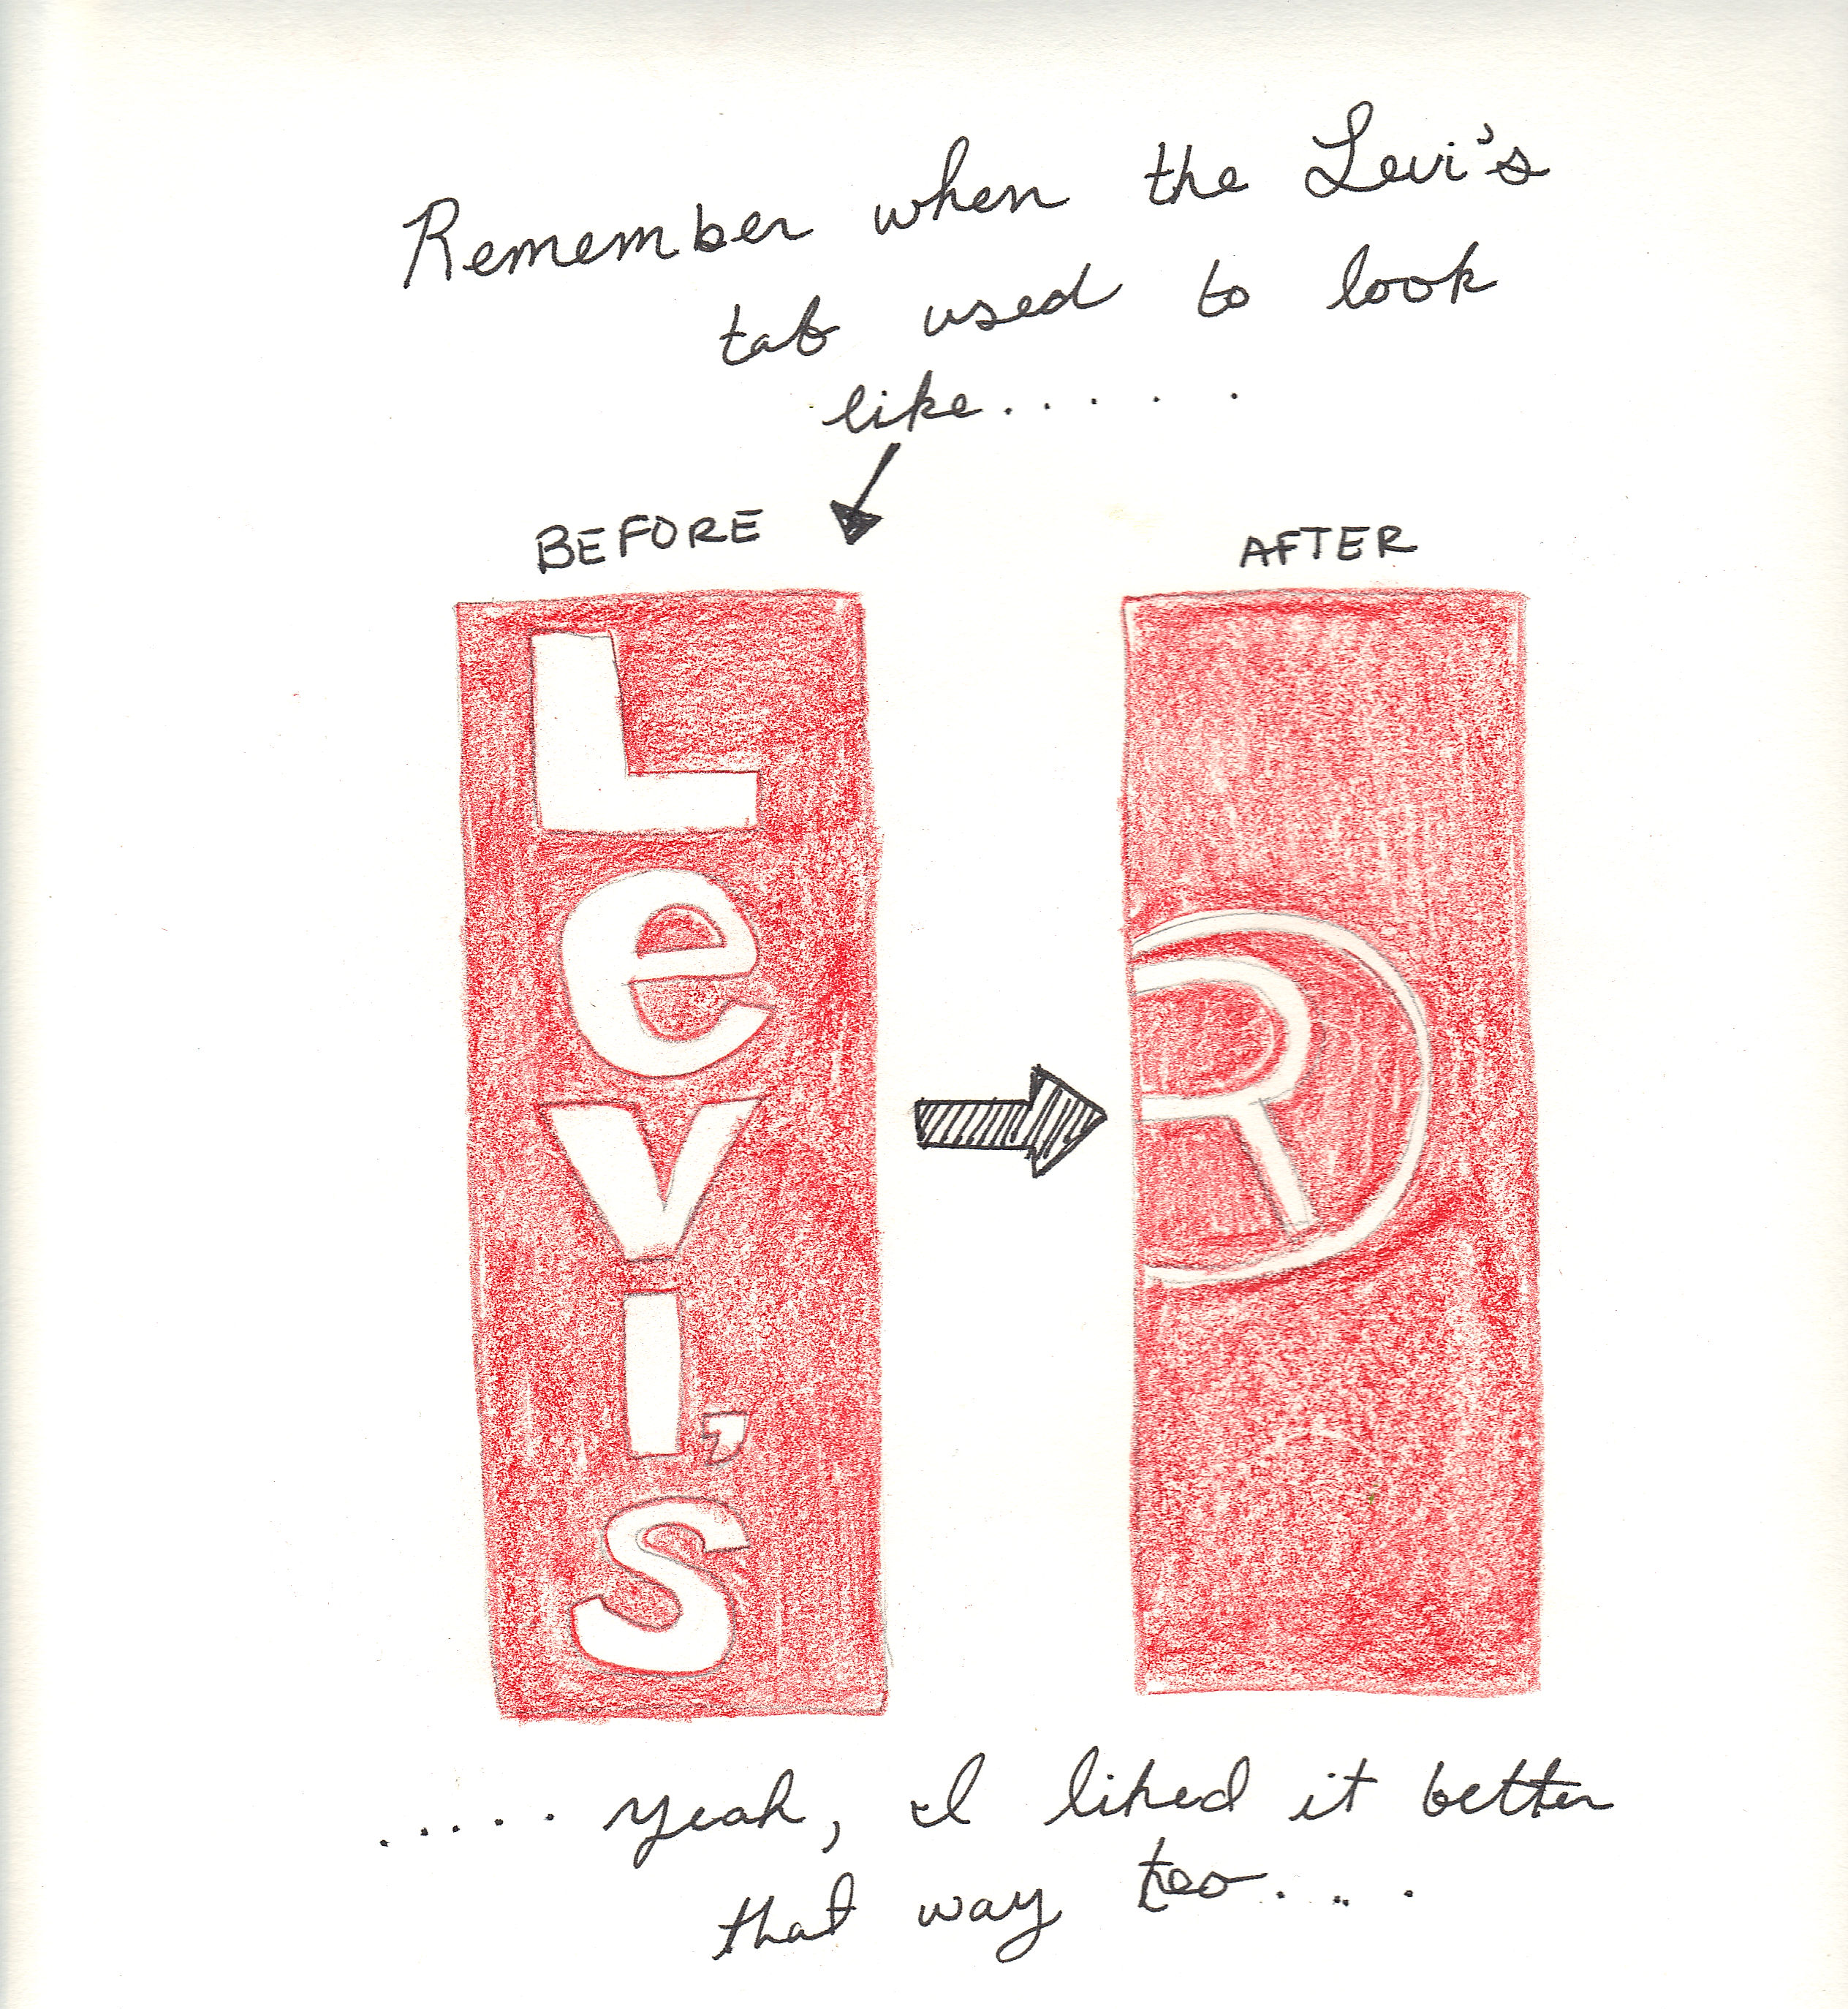 Remember when the Levi's
tab used to look
like.....
BEFORE
AFTER
Levi's
R
..... yeah, I liked it better
that way too....